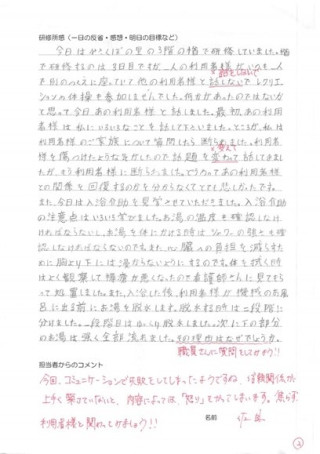 研修所感(一日の反省・感想・明日の目標など)
今日はやさしほの里の3階の
で研修するのは3日目ですが、一人の利用者様がいつも一人
話をしないで
で机のつくえに座っていて他の利用者様と話しないでレクリエ
ションの体操も参加しませんでした。何かがあったのではないか
と思って今日あの利用者様と話しました。最初あの利用者
様は私にいろいろなことを話して下さいました。ところが、私は
利用者様のご家族について質問したら断られました。利用者
変えて
様を傷つけたような気がしたので話題を変わて話してきました
が、もう利用者様に断られました。どうやってあの利用者様
との関係を回復するのかを分からなくてとても悲しかったです。
また、今日は入浴介助を見学させていただきました。入浴介助
の注意点はいろいろ学びました。お湯の温度を確認しなけ
ればならないし、お湯を体にかける時は
認しなければならないのです。また、心臓への負担を減らすた
めに胸より下にはいるようにするのです。体を拭くの時に
はよく観察して
って処置しました。また、入浴した後、利用者様が機械のお風
呂に出る前にお湯を脱水します。脱水する時は二段階に
分けました。一段階目はゆっくり脱水しました。次に下の部分
のお湯は強く全部流れました。その理由はなぜでしょうか。
職員さんに質問をしてみよう!!
担当者からのコメント
今回、コミュニケーションで失敗をしてしまったようですね。信頼関係が
上手く築けていないと、内容によっては、「怒り」をかってしまいます。焦らず
利用者様と関わってみましょう!!
名前